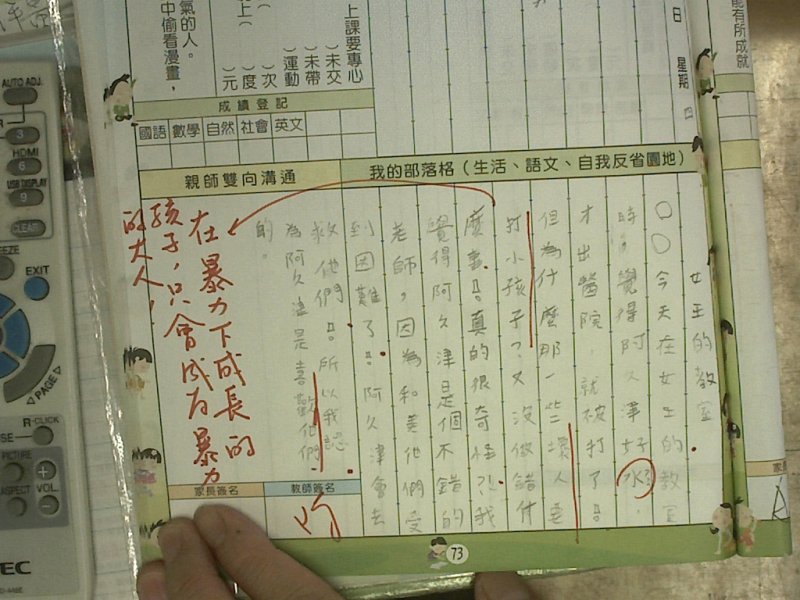 能有所成就
日 星期 四
上課要專心
（ ）未交
（ ）未帶
（ ）運動
（ ）次
上（ ）度
（ ）元
氣的人。
中偷看漫畫，
成績登記
國語 數學 自然 社會 英文
我的部落格（生活、語文、自我反省園地）
親師雙向溝通
女王的教室
○○今天在女王的教室
時，覺得阿久津好
才出醫院，就被打了。
但為什麼那一些壞人
打小孩子？又沒做錯什
麼事。真的很奇怪，我
覺得阿久津是個不錯的
老師，因為和美他們受
到困難了。阿久津會去
救他們。所以我認
為阿久津是喜歡他們
的。
在暴力下成長的
孩子，只會成為暴力
的大人，
教師簽名
家長簽名
73
AUTO ADJ.
3
HDMI
6
USB DISPLAY
9
CLEAR
EXIT
PAGE
R-CLICK
PICTURE
ASPECT
VOL.